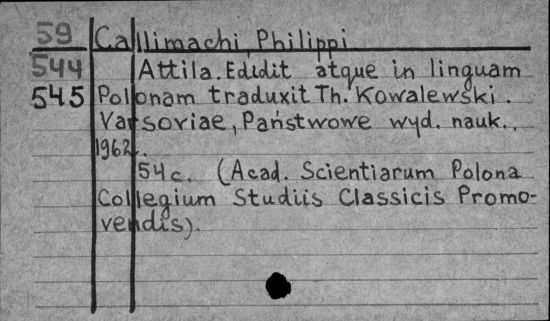 59 Callimachi, Philippi
544 Attila. Edidit atque in linguam
545 Polonam traduxit Th. Kowalewski.
Varsoviae, Państwowe wyd. nauk.,
1962.
54 c. (Acad. Scientiarum Polona
Collegium Studiis Classicis Promo-
vendis).